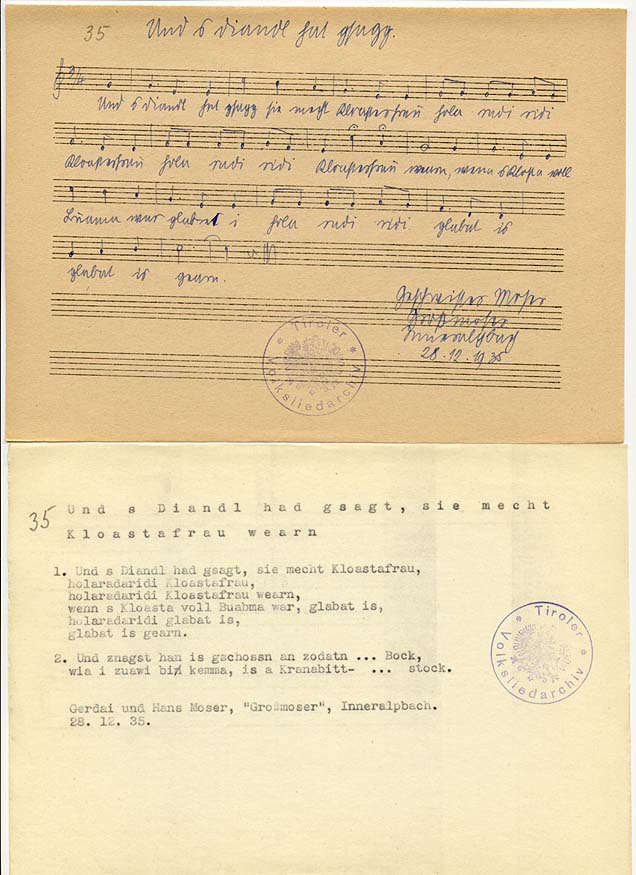 35 Und s diandl hat gsagg.
3/4
Und s diandl hat gsagg sie mecht Kloasterfrau hola radi ridi
Kloasterfrau hola radi ridi Kloasterfrau wearn, wenn s Klosta voll
Buama war glabat i hola radi ridi glabat is
glabat is gearn.
Geschwister Moser
Großmoser
Inneralpbach
28.12.1935
* Tiroler * Volksliedarchiv
35 Und s Diandl had gsagt, sie mecht
Kloastafrau wearn
1. Und s Diandl had gsagt, sie mecht Kloastafrau,
holaradaridi Kloastafrau,
holaradaridi Kloastafrau wearn,
wenn s Kloasta voll Buabma war, glabat is,
holaradaridi glabat is,
glabat is gearn.
2. Und znagst han is gschossn an zodatn ... Bock,
wia i zuawi bin kemma, is a Kranabitt- ... stock.
* Tiroler * Volksliedarchiv
Gerdai und Hans Moser, "Großmoser", Inneralpbach.
28. 12. 35.